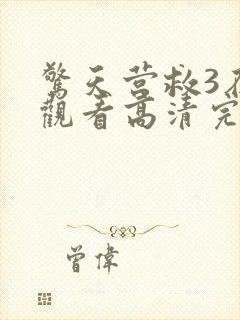 驚天营救3在
觀看高清完
曾偉